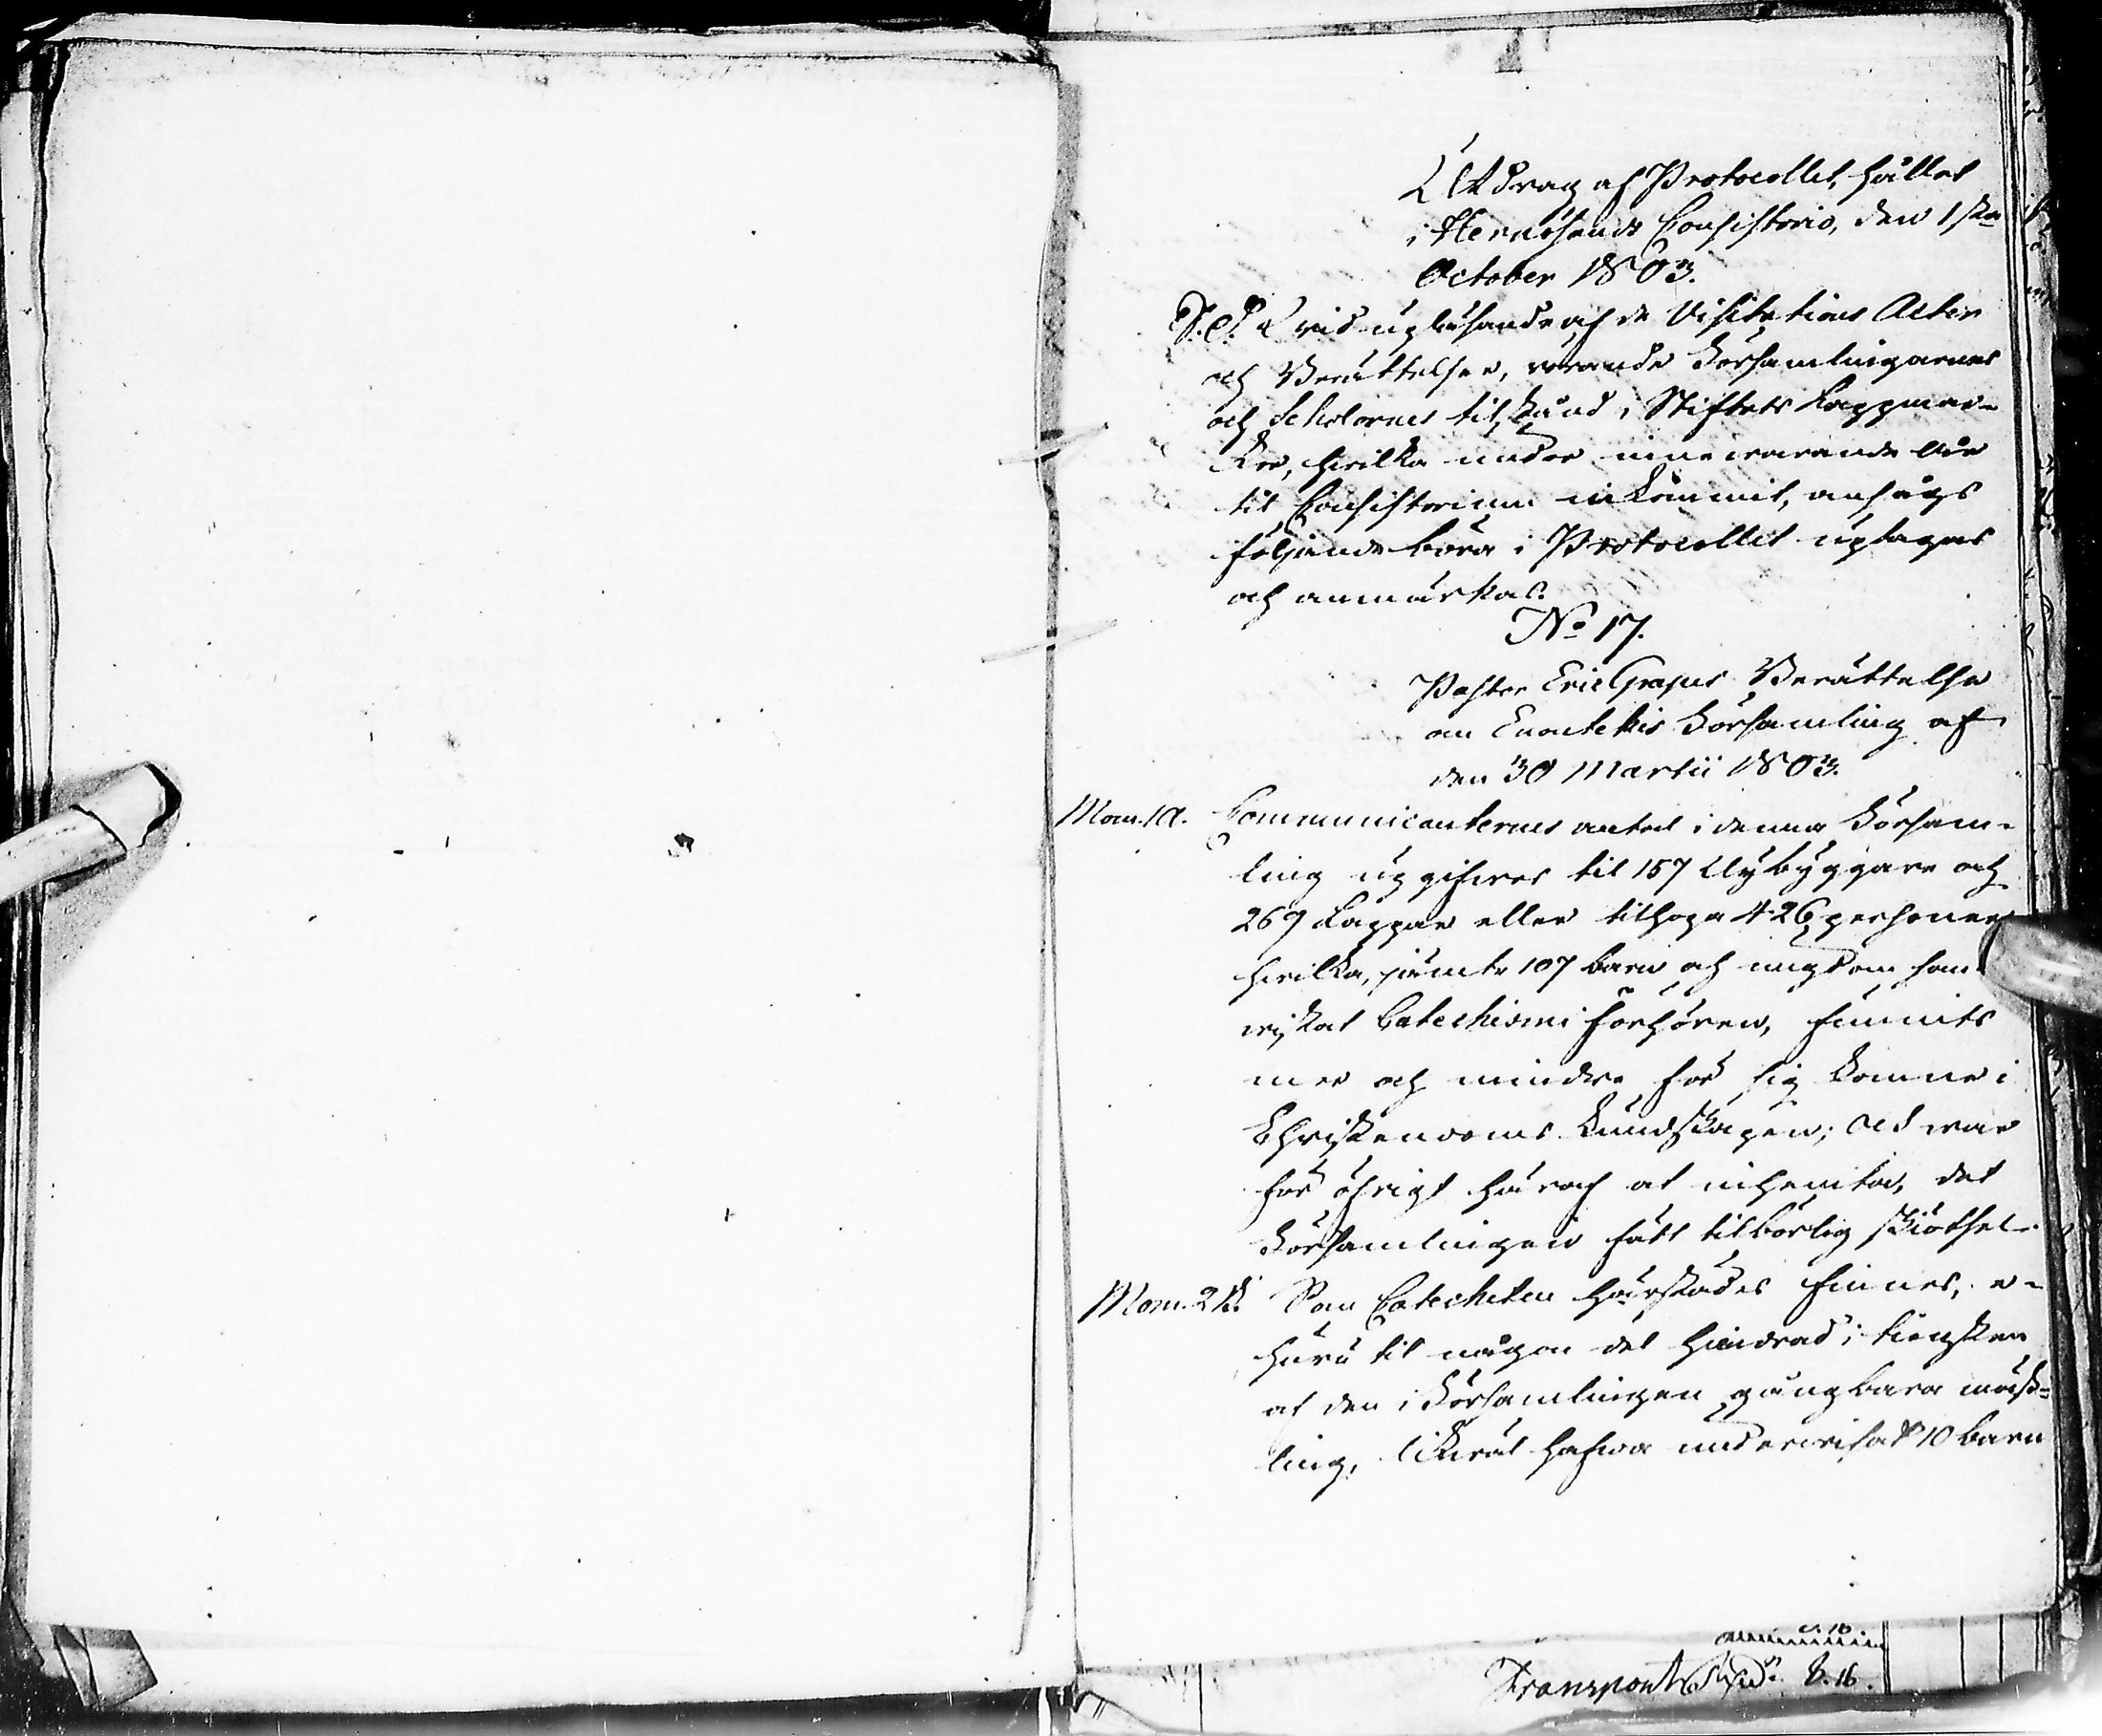 Utdrag af Protocollet, hållet
i Hernösands Consistorio, den 1sta
October 1803.
S. D. vid upläsande af de Visitations Acter
och Berättelser, rörande Församlingarnes
och Scholornes tilstånd i Stiftets Lappmar-
ker, hvilka under innevarande År
til Consistorium inkommit, ansågs
följande böra i Protocollet uptagas
och anmärkas.
No 17.
Pastor Eric Grapes Berättelse
om Enontekis Församling af
den 30 Martii 1803.
Mom. 1a. Communicanternes antal i denna Försam-
ling upgifves til 157 Nybyggare och
269 Lappar eller tilhopa 426 personer
hvilka, jämte 107 barn och ungdom som
wistat Catechismi förhören, funnits
mer och mindre för sig komne i
Christendoms Kundskapen; Och war
för öfrigt häraf at inhemta, det
Församlingen fått tilbörlig skiötsel.
Mom. 2d. Som Catecheten härstädes finnes, e-
huru til någon del hindrad i tiensten
af den i Församlingen gångbara mäss-
ling, likwäl hafwa underwisat 10 barn
Transport S:16.